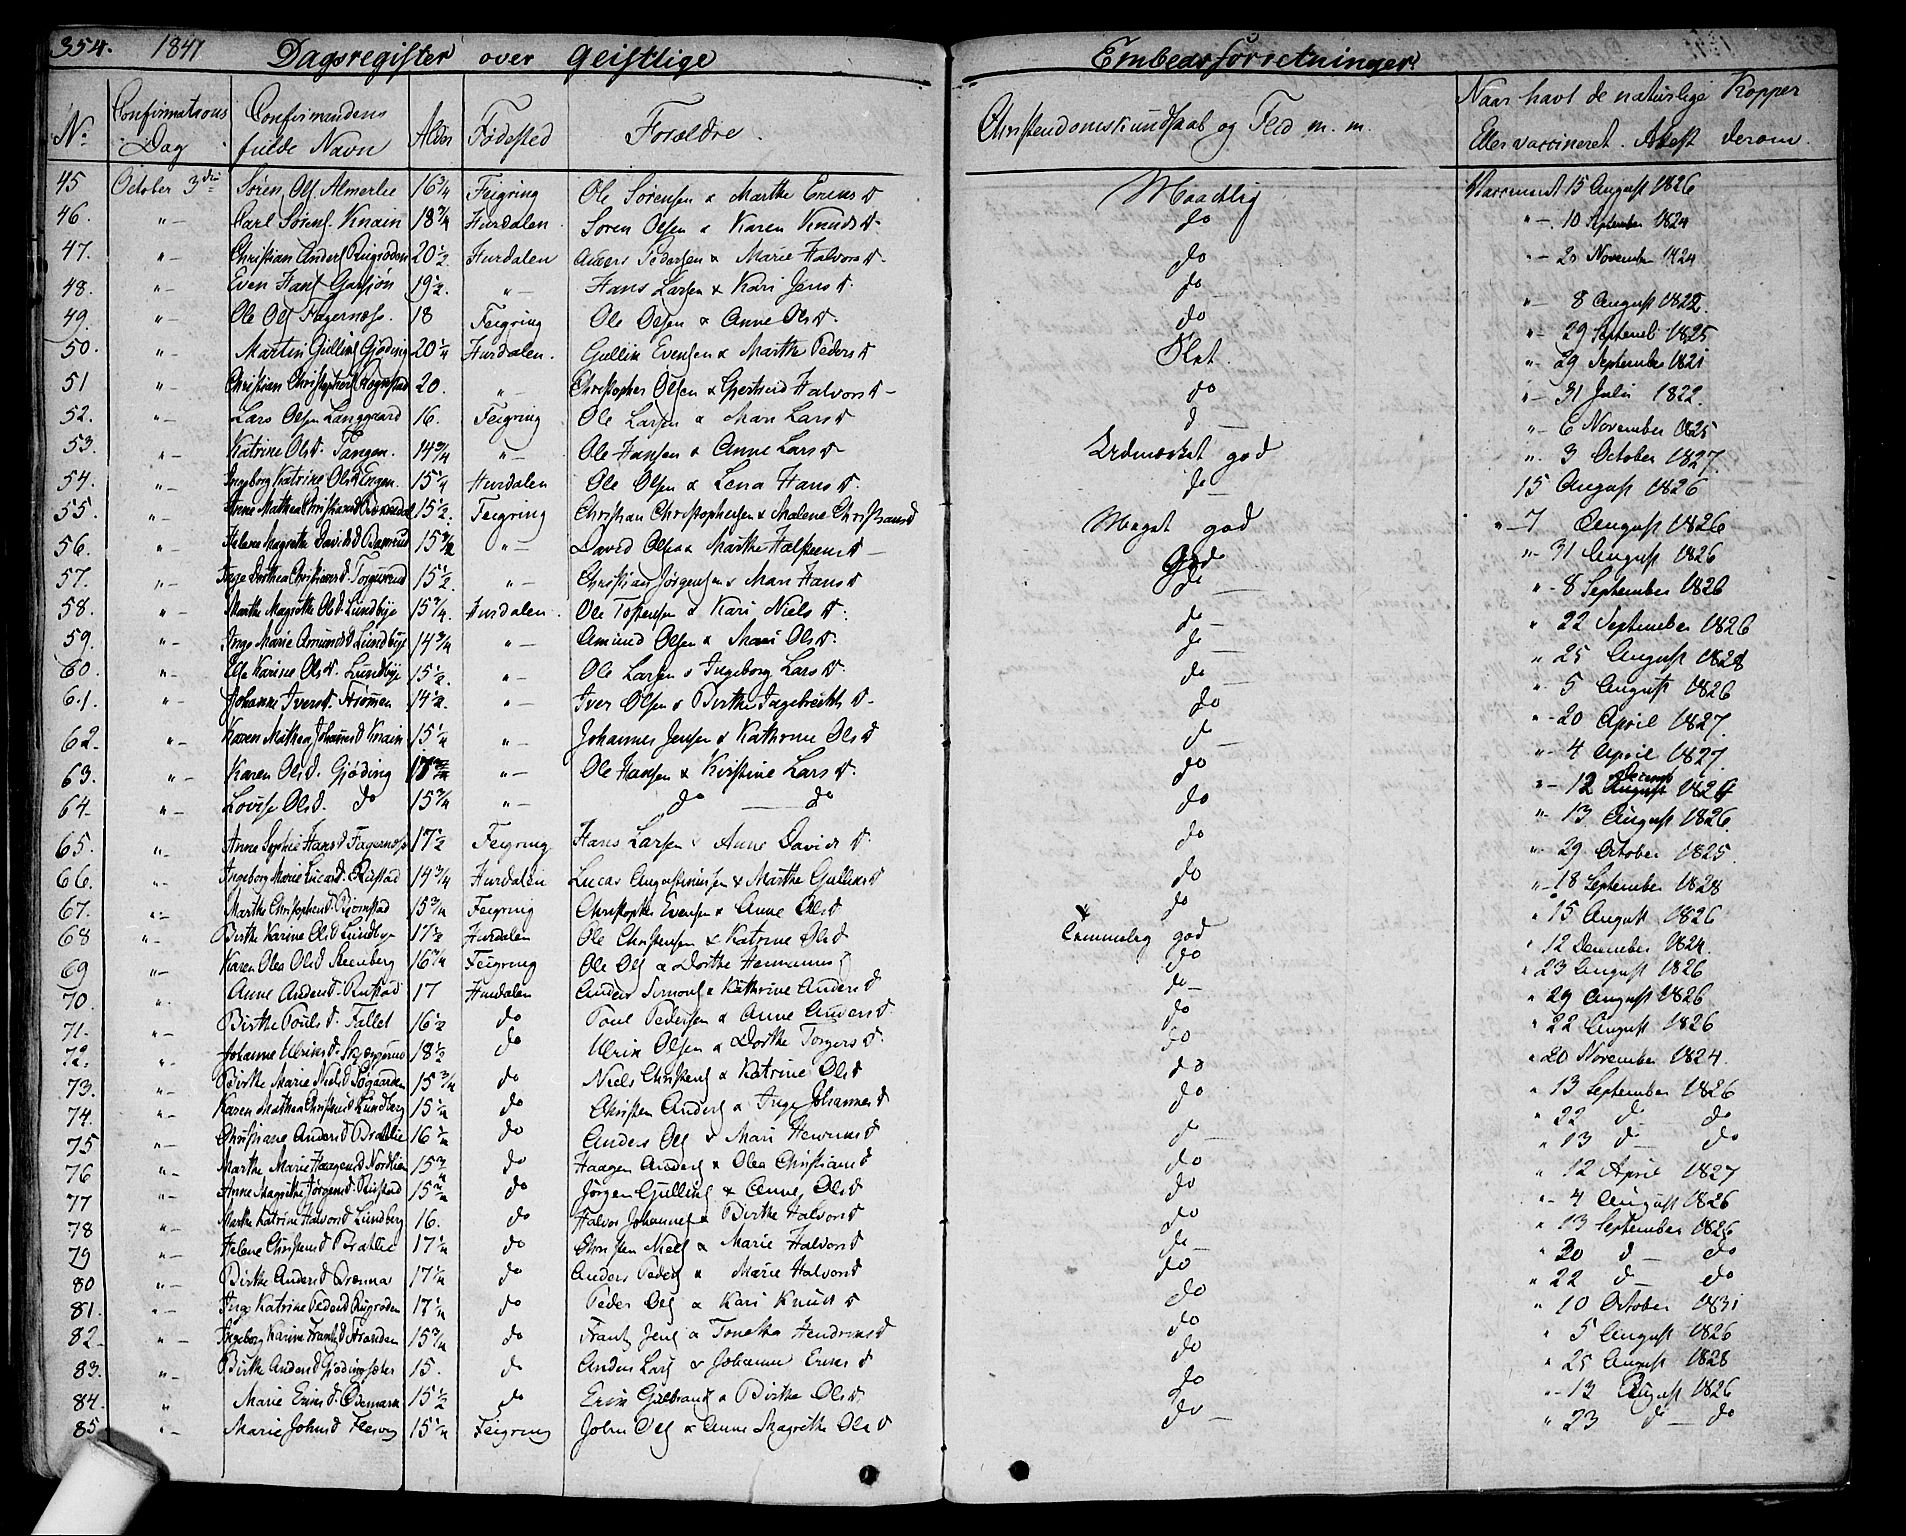 354. 1841 Dagsregister over Geistlige Embedsforretninger.
No Confirmations Dag Confirmandens fulde Navn Alder Fødested Forældre. Christendomskundskab og Flid m. m. Naar havt de naturlige Kopper Eller vaccineret. Attest derom.
45 October 3die Søren Ols. Almerlie 16 3/4 Feigring Ole Sørensen & Marthe Ericsd Maadelig Vaccineret 15 August 1826
46. "- Carl Sørens. Knain 18 3/4 Hurdalen. Søren Olsen & Karen Knudsd. do "- 10 September 1824
47. "- Christian Anders 20 1/2. Hurdalen Anders Pedersen & Marie Halvorsd. do "- 20 November 1824
48. "- Even Hans 19 1/2. "- Hans Larsen & Kari Jensd. do "- 8 August 1822
49. "- Ole Ols Fagernæss. 18 Feigring Ole Olsen & Anne Olsd. do "- 29 Septemb 1825
50. "- Martin Gullins Gjøding 20 1/4 Hurdalen. Gullin Evensen & Marthe Pedersd Slet. "- 29 September 1821
51 "- Christian Christophers 20. "- Christopher Olsen & Gjertrud Halvorsd- do "- 31 Julii 1822.
52. "- Lars Olsen Langgaard 16. Feigring Ole Larsen & Mari Larsd d- "- 6 November 1825
53. "- Katrine Olsd. Tangen. 14 3/4 "- Ole Hansen & Anne Larsd Udmærket god ". 3 October 1827.
54. "- Ingeborg Katrine Olsd Engen. 15 1/4 Hurdalen Ole Olsen & Lena Hansd do- 15 August 1826
55. "- Anne Mathea Christiansd 15 1/2. Feigring Christian Christophersen & Malene Christiansd Meget god "-7 August 1826
56. "- Helene Magrethe Davidsd 15 3/4 "- David Olsen & Marthe Halsteensd- God "- 31 August 1826
57. "- Inge Dorthea Christiansd. 15 1/2 "- Christian Jørgensen & Mari Hansd do- "- 8 September 1826
58. "- Marthe Magrethe Olsd. Lundbye 15 3/4. Hurdalen. Ole Tostensen & Kari Nielsd. do- " 22 September 1826
59. "- Inge Marie Amundsd Lundbye 14 3/4 "- Amund Olsen & Mari Olsd. do- " 25 August 1828
60. "- Else Karine Olsd. Lundbye 15 1/2. "- Ole Larsen & Ingeborg Larsd. do- ". 5 August 1826
61. "- Johanne Iversd. Strømen 14 1/2. "- Iver Olsen & Birthe Ingebrethsd- do "- 20 April 1827.
62- "- Karen Mathea Johansd Knain 15 1/4 "- Johannes Jensen & Kathrine Olsd d- "- 4 April 1827.
63. "- Karen Olsd. Gjøding 17 3/4 "- Ole Hansen & Kirstine Larsd. do "- 12 Decemb 1824
64- "- Lovise Olsd. do 15 3/4 "- do do do "- 13 August 1826.
65. "- Anne Sophie Hansd Fagernæss 17 1/2 Feigring Hans Larsen & Anne Davidsd. do "- 29 October 1825.
66. "- Ingeborg Marie Lucasd. Rustad 14 3/4 Hurdalen Lucas Augustinussen & Marthe Gullinsd do "- 18 September 1828
67. "- Marthe Christophersd. Bjørnstad 15 3/4 Feigring Christopher Evensen & Anne Olsd do " 15 August 1826
68 "- Birthe Karine Olsd Lundbye 17 1/2 Hurdalen Ole Christensen & Katrine Olsd Temmelig god " 12 December 1824.
69 "- Karen Olea Olsd Steenberg 16 3/4 Feigring Ole Ols & Dorthe do " 23 August 1826
70. ". Anne Andersd. Rustad 17 Hurdalen Anders Simons & Kathrine Andersd do- " 29 August 1826
71- "- Birthe Pouls d. Fallet 16 1/2 do Poul Pedersen & Anne Andersd. do " 22 August 1826
72. ". Johanne Ulriksd. 18 1/2 do Ulrik Olsen & Dorthe Torgersd. do " 20 November 1824.
73. "- Birthe Marie Nielsd Søgaarden 15 3/4 do Niels Christens & Katrine Olsd do " 13 September 1826
74. "- Karen Mathea Christensd Lundberg 15 1/4 do Christen Anders & Inge Johannesd do " 22 d- do
75 "- Christiane Andersd. Bratlie 16 1/4 do Anders Ols & Mari Henriksd d- " 13 d- do
76 "- Marthe Marie Haagensd Nordlien 15 3/4 do Haagen Anders & Olea Christiansd do " 12 April 1827
77 "- Anne Magrethe Jørgensd. Rustad 15 3/4 do Jørgen Gullins & Anne Olsd do "- 4 August 1826
78 "- Marthe Katrine Halvorsd Lundberg 16. do Halvor Johannes & Birthe Halvorsd do " 13 September 1826
79 "- Helene Christensd Bratlie 17 1/4 do Christen Niels & Marie Halvorsd do- " 20 d- do
80 "- Birthe Andersd 17 1/4 do Anders Peders & Marie Halvorsd do " 22 d- do
81. "- Inge Katrine Pedersd 17 1/4 do Peder Ols & Kari Knudsd do " 10 October 1831
82- "- Ingeborg Karine Frantsd Stranden 15 3/4 do Frants Jens & Tonetta Hendriksd do " 5 August 1826
83. "- Birthe Andersd 15. do Anders Lars & Johanne Ericsd do " 25 August 1828
84. " Marie Ericsd. 15 1/2 do Erik Gulbrands & Birthe Olsd do "- 13 August 1826
85. "- Marie Johnsd 15 1/4 Feigring John Ols & Anne Magrethe Olsd do- " 23 d- do